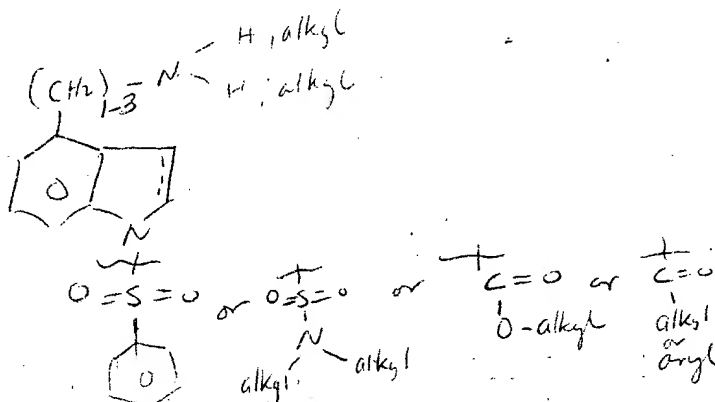 H, alkyl
(CH2)1-3 - N
H, alkyl
O
N
O=S=O or O=S=O or C=O or C=O
O N O-alkyl alkyl
or
alkyl alkyl aryl